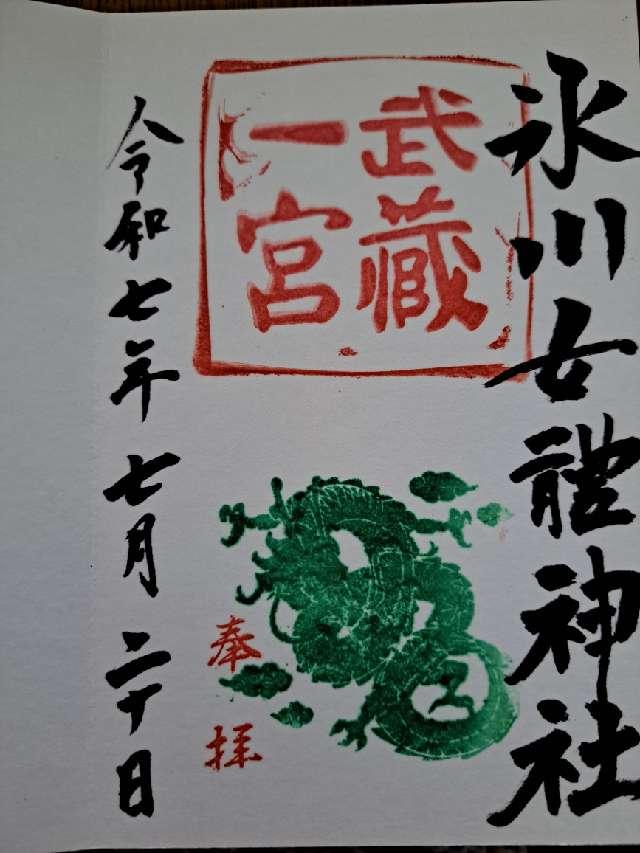 氷川女體神社
武蔵
一宮
奉拝
令和七年七月二十日